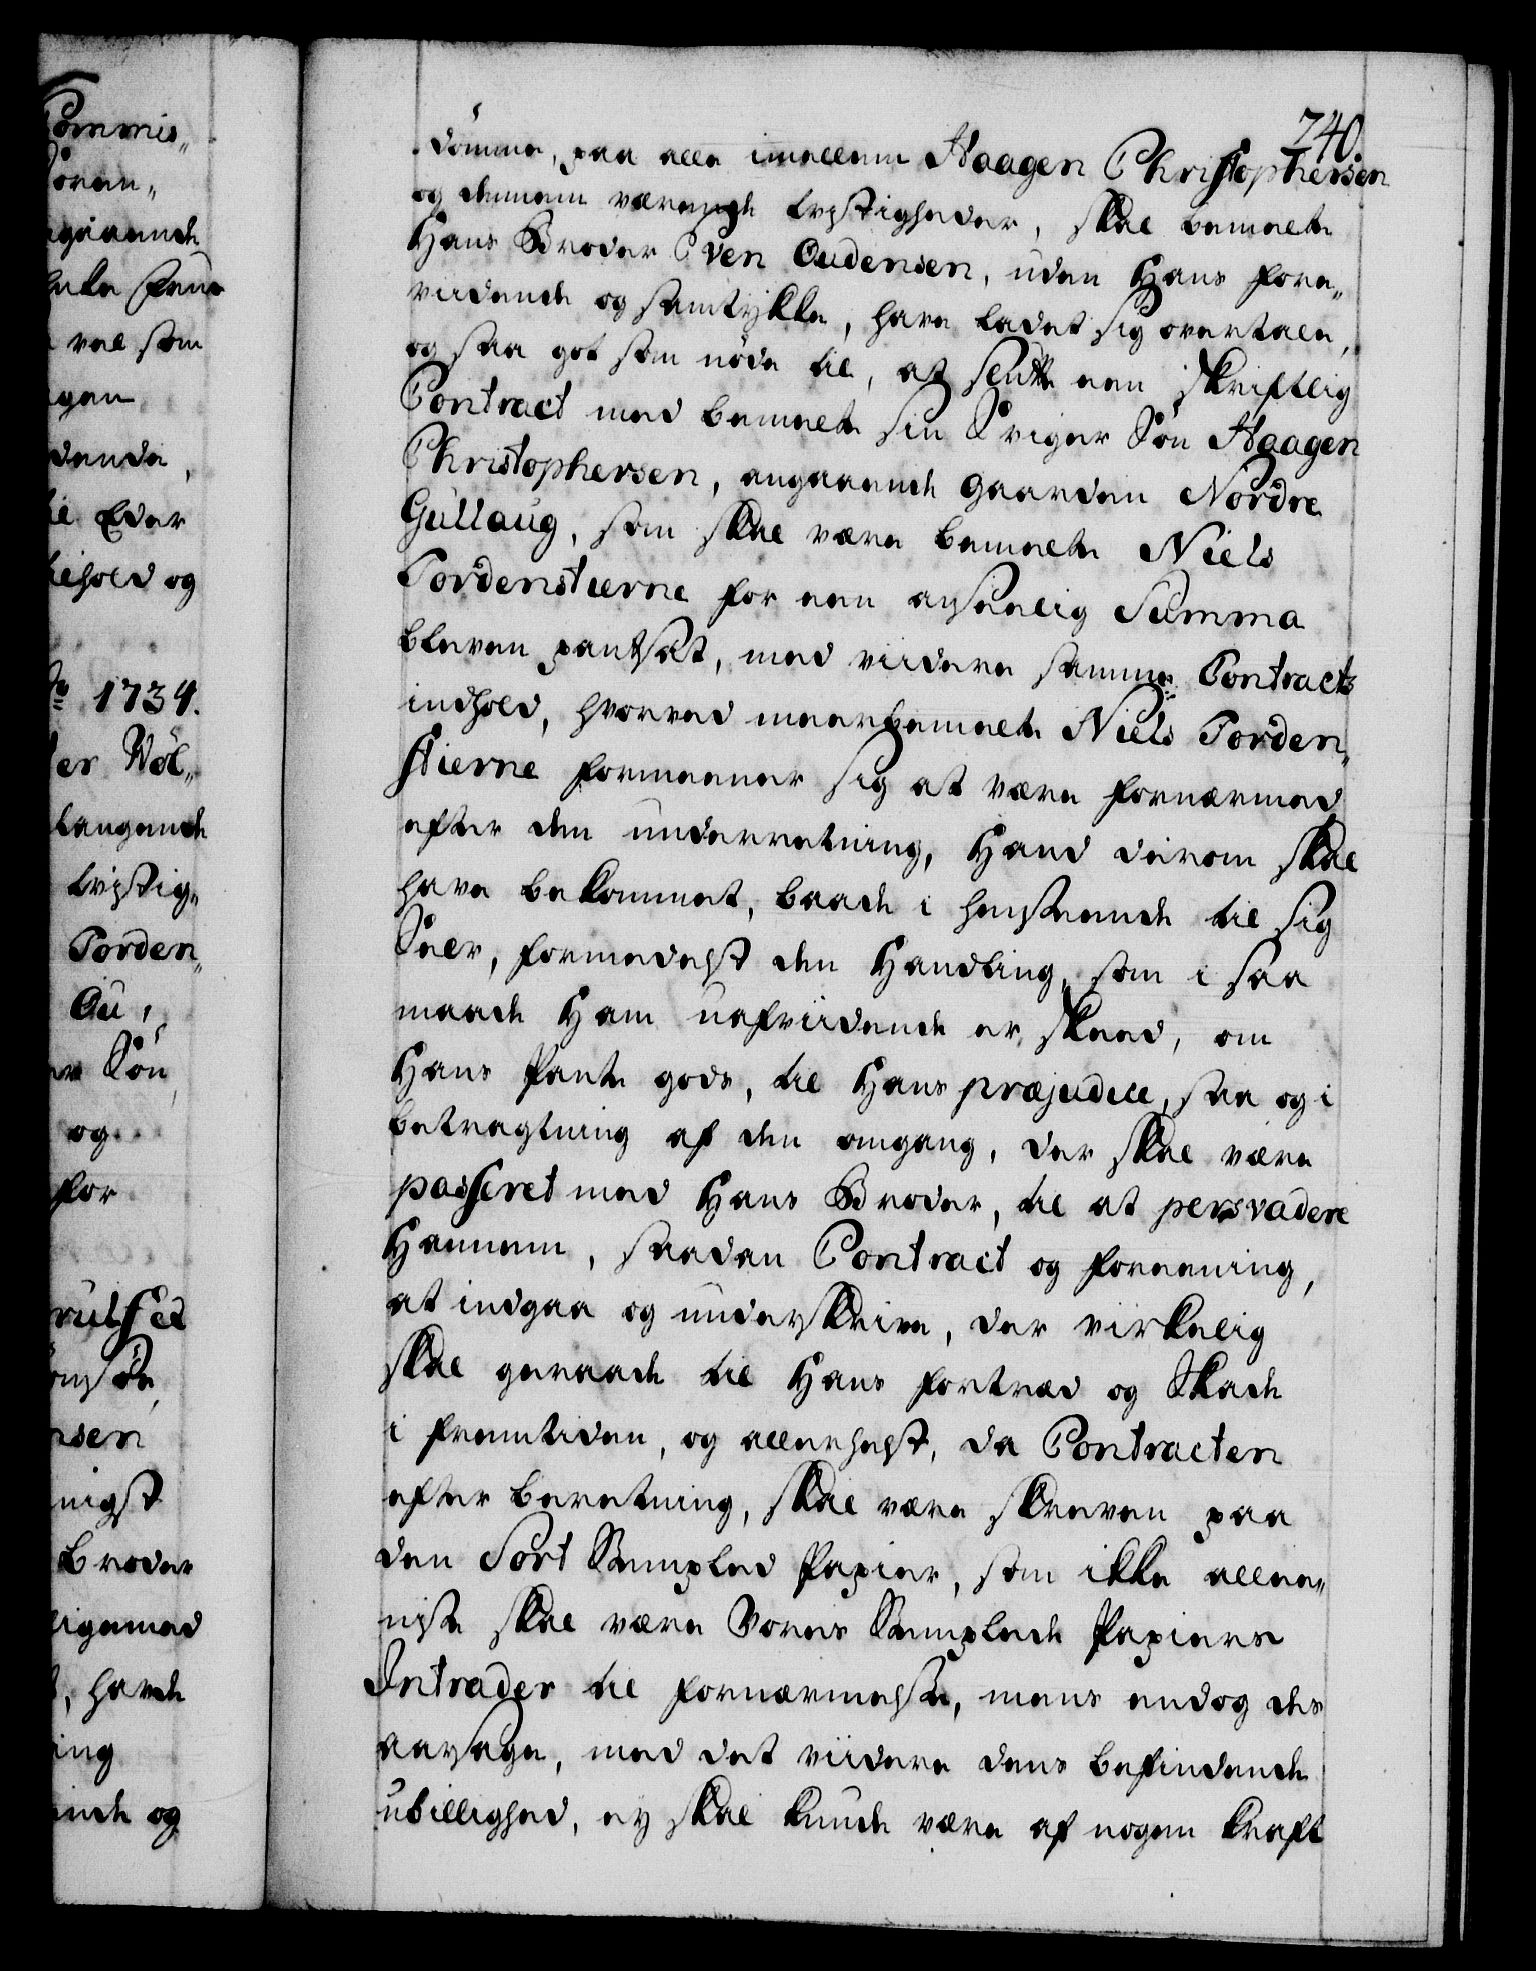 Commis„
Sören„
gaaende
val som
gen
dende,
Eder
hold og
1734.
er Vel„
langende
tvistig„
Torden„
Ou,
Sön
og
for
nsen
nigst
broder
ligemed
, havde
ing
ende og
740.
dömme, paa alle imellem Haagen Christophersen
og dennem værende tvistigheder, skal bemelte
Hans Broder Even Oudensen, uden Hans for„
viidende og samtykke, have ladet sig overtale,
og saa got som nöde til, at slutte een skriftlig
Contract med bemelte sin Sviger Sön Haagen
Christophersen, angaaende Gaarden Nordre
Gullaug, som skal være bemelte Niels
Tordenstierne for een anseelig Summa
bleven pantsat, med viidere samme Contracts
indhold, hvorved meerbemelte Niels Torden„
stierne formeener sig at være fornærmed,
efter den underretning, Hand derom skal
have bekommet, baade i henseende til sig
Self, formedelst den Handling, som i saa
maade Ham uafviidende er skeed, om
Hans Pante gods, til Hans præjudice, saa og i
betragtning af den omgang, der skal være
passeret med Hans Broder, til at persvadere
Hannem, saadan Contract og foreening,
at indgaa og underskrive, der virkelig
skal geraade til Hans fortræd og Skade
i fremtiden, og allerhelst, da Contracten
efter beretning, skal være skreven paa
den Sort Stempled Papiir, som ikke allee„
niste skal være Vores Stemplede Papiirs
Intrader til fornærmelse, mens endog des
aarsage, med det viidere dens befindende
ubillighed, ey skal kunde være af nogen kraft